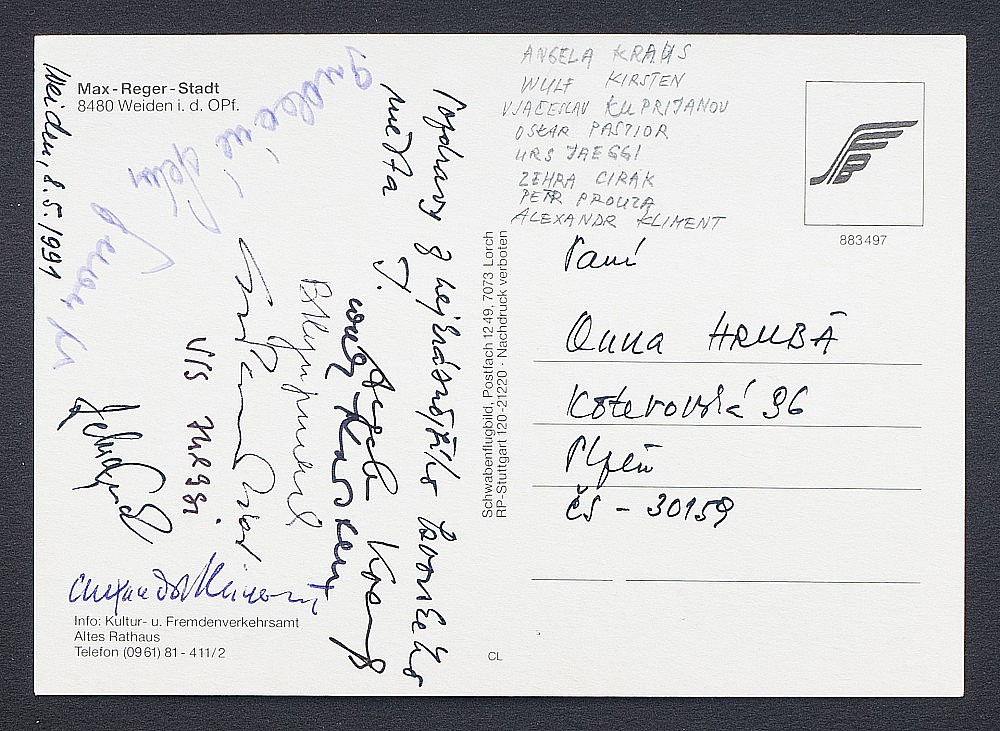 Max-Reger-Stadt
8480 Weiden i. d. OPf.
Weiden, 8.5.1991
Pozdravy z nejkrásnějšího
města J.
Wulf Kirsten
Urs Jaeggi
Info: Kultur- u. Fremdenverkehrsamt
Altes Rathaus
Telefon (0961) 81-411/2
Schwabenflugbild, Postfach 1249, 7073 Lorch
RP-Stuttgart 120-21220 · Nachdruck verboten
CL
ANGELA KRAUS
WULF KIRSTEN
VJAČESLAV KUPRIJANOV
OSKAR PASTIOR
URS JAEGGI
ZEHRA CIRAK
PETR PROUZA
ALEXANDR KLIMENT
883497
Paní
Anna HRUBÁ
Koterovská 96
Plzeň
ČS - 30159